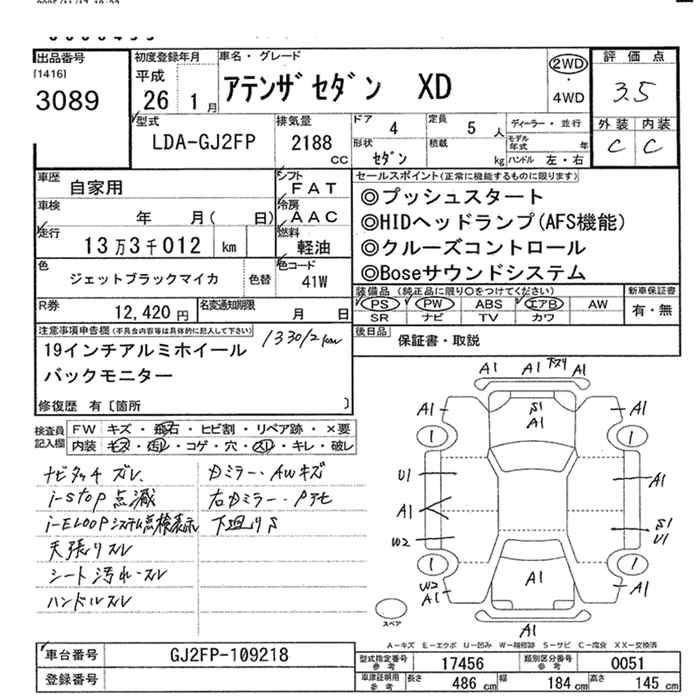 出品番号
[1416]
3089
初度登録年月
平成
26 1月
車名・グレード
アテンザセダン XD
2WD
・
4WD
評価点
3.5
外装 内装
C C
型式
LDA-GJ2FP
排気量
2188
cc
ドア 4
定員 5 人
形状 セダン
積載 kg
ディーラー・並行
モデル年式 年
ハンドル 左・右
車歴
自家用
シフト
FAT
車検
年 月( 日)
冷房
AAC
走行
13万3千012 km
燃料
軽油
色
ジェットブラックマイカ
色替
色コード
41W
R券
12,420 円
名変通知期限
月 日
セールスポイント(正常に機能するものに限ります)
◎プッシュスタート
◎HIDヘッドランプ(AFS機能)
◎クルーズコントロール
◎Boseサウンドシステム
装備品 (純正品に限り○をつけてください)
PS PW ABS エアB AW
SR ナビ TV カワ
新車保証書
有・無
後日品
保証書・取説
注意事項申告欄(不具合内容等は具体的に記入して下さい)
133012km
19インチアルミホイール
バックモニター
修復歴 有〔箇所 〕
検査員記入欄
FW キズ・飛石・ヒビ割・リペア跡・×要
内装 キズ・汚れ・コゲ・穴・スレ・キレ・破レ
ナビタッチズレ、
i-stop点滅
i-ELOOPシステム点検表示
天張リスレ
シート汚れ・スレ
ハンドルスレ
Dミラー・AWキズ
右Dミラー・Pデモ
下廻りS
A1 A1 下スリ A1
A1 S1 A1 A1
1 1
U1 A1
A1
W2 S1 U1
1 1
W2 A1 A1 A1
A1
スペア
A-キズ E-エクボ U-凹み W-補修跡 S-サビ C-腐食 XX-交換済
車台番号
GJ2FP-109218
登録番号
型式指定番号 参考 17456
類別区分番号 参考 0051
車庫証明用 参考
長さ 486 cm
幅 184 cm
高さ 145 cm